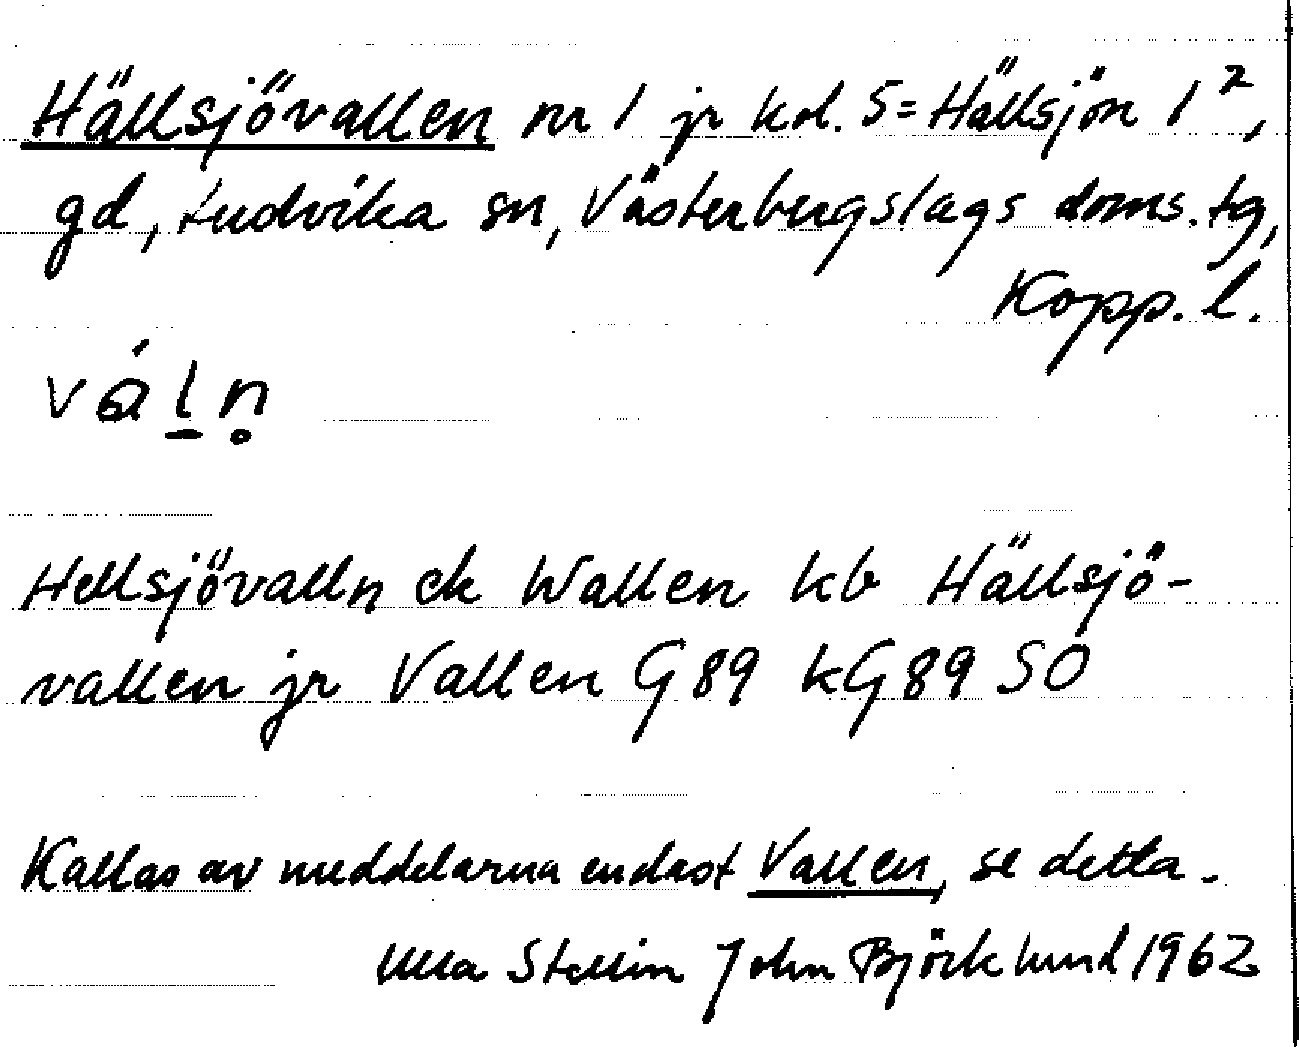 Hällsjövallen nr 1 jr kol. 5 = Hällsjön 1²,
gd, Ludvika sn, Västerbergslags doms. tg,
Kopp. l.
vάl̲n̥
Hellsjövalln ek Wallen kb Hällsjö-
vallen jr Vallen G89 kG89 SO
Kallas av meddelarna endast Vallen, se detta.
Ulla Stellin John Björklund 1962